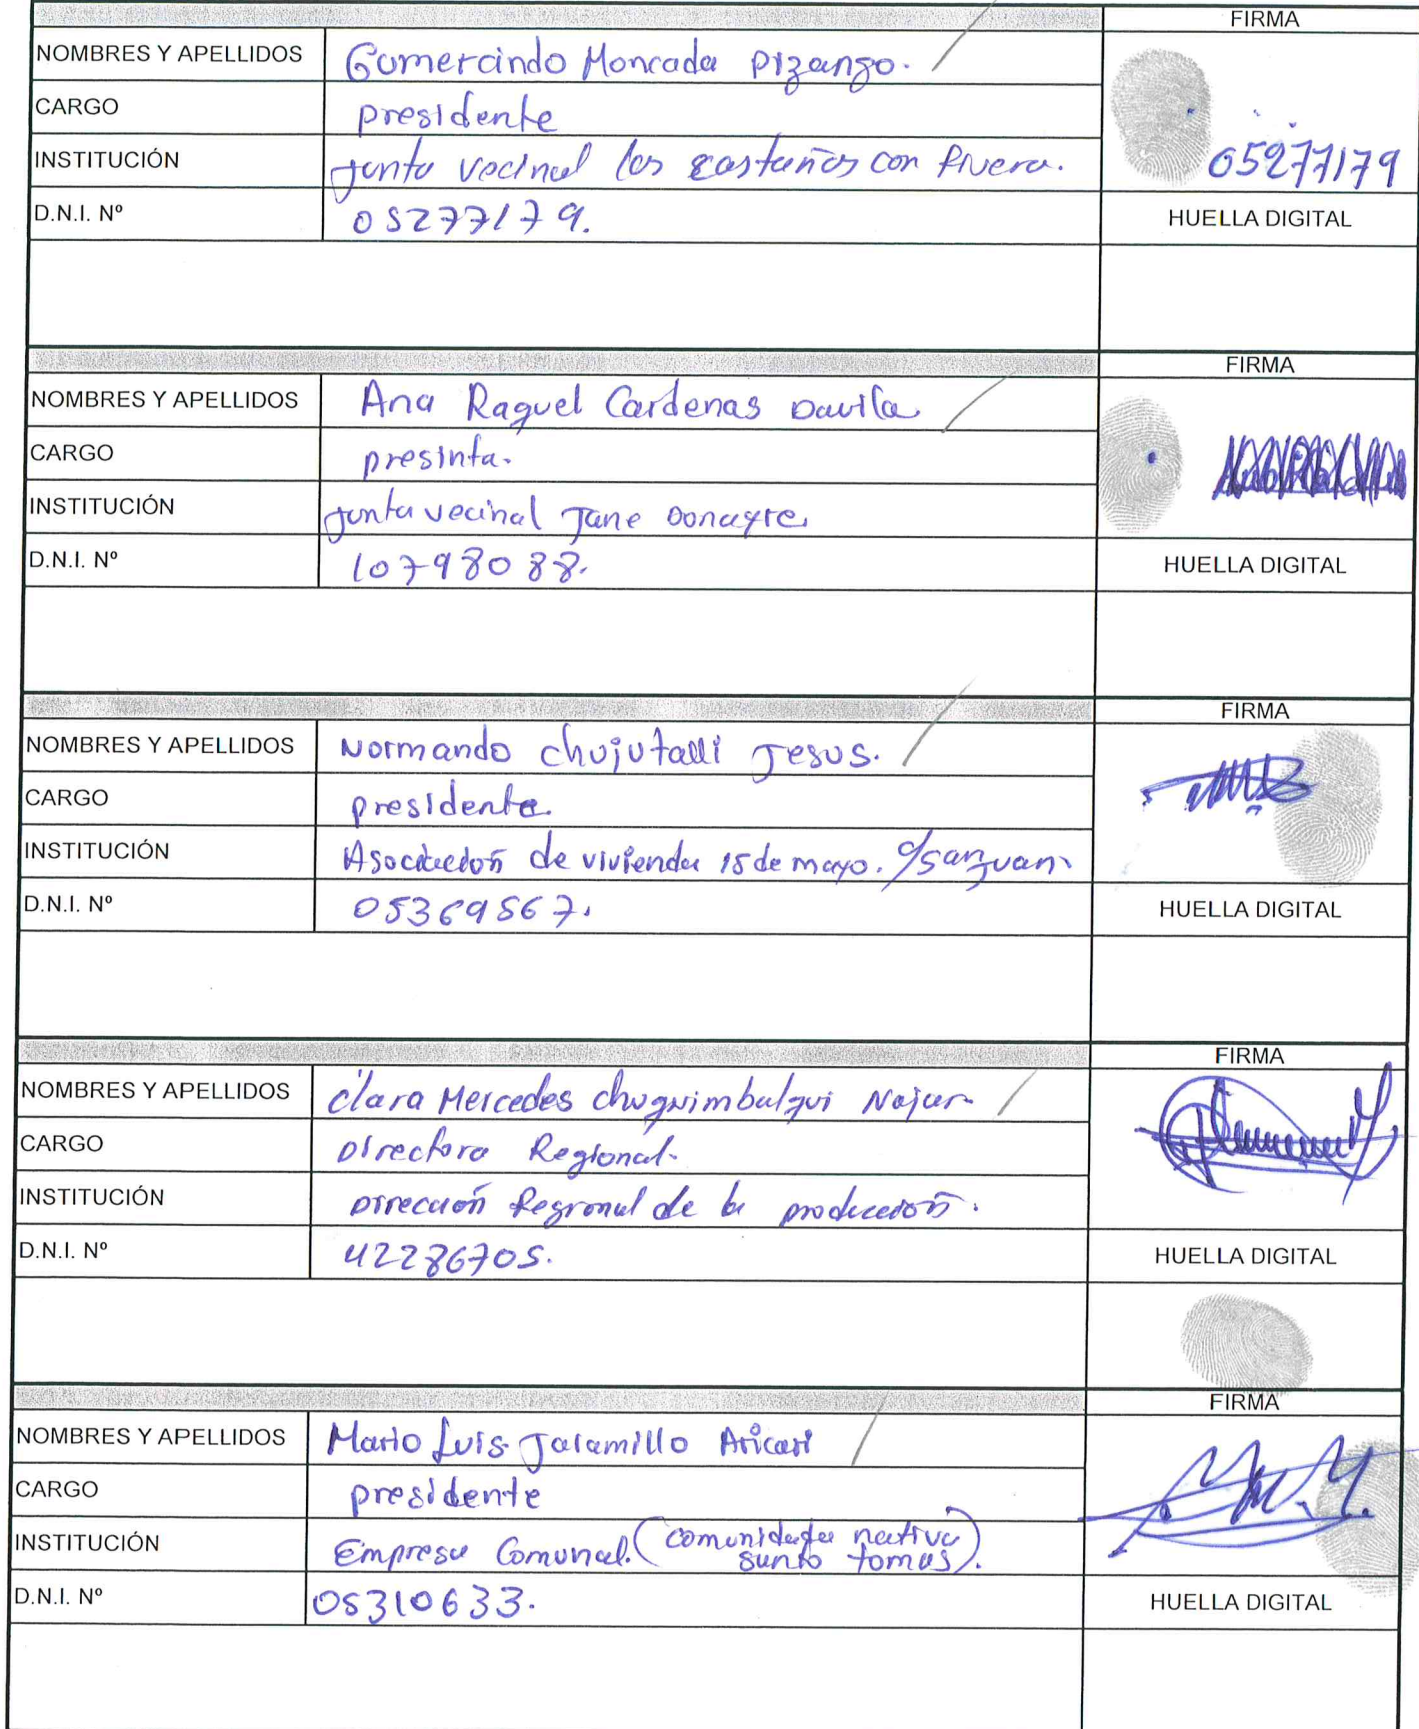 FIRMA
NOMBRES Y APELLIDOS Gumercindo Moncada Pizango.
CARGO presidente
INSTITUCIÓN Junta vecinal los castaños con Rivera.
05277179
D.N.I. Nº 05277179.
HUELLA DIGITAL
FIRMA
NOMBRES Y APELLIDOS Ana Raquel Cardenas Davila
CARGO presinta.
INSTITUCIÓN Junta vecinal Jane Donayre.
D.N.I. Nº 10798088.
HUELLA DIGITAL
FIRMA
NOMBRES Y APELLIDOS Normando Chujutalli Jesus.
CARGO presidente.
INSTITUCIÓN Asociación de vivienda 15 de mayo. c/San Juan.
D.N.I. Nº 05369567.
HUELLA DIGITAL
FIRMA
NOMBRES Y APELLIDOS Clara Mercedes Chuquimbalqui Najar
CARGO Directora Regional.
INSTITUCIÓN Dirección Regional de la producción.
D.N.I. Nº 42286705.
HUELLA DIGITAL
FIRMA
NOMBRES Y APELLIDOS Mario Luis Jaramillo Aricari
CARGO presidente
INSTITUCIÓN Empresa Comunal. (comunidad nativa
santo tomas).
D.N.I. Nº 05310633.
HUELLA DIGITAL